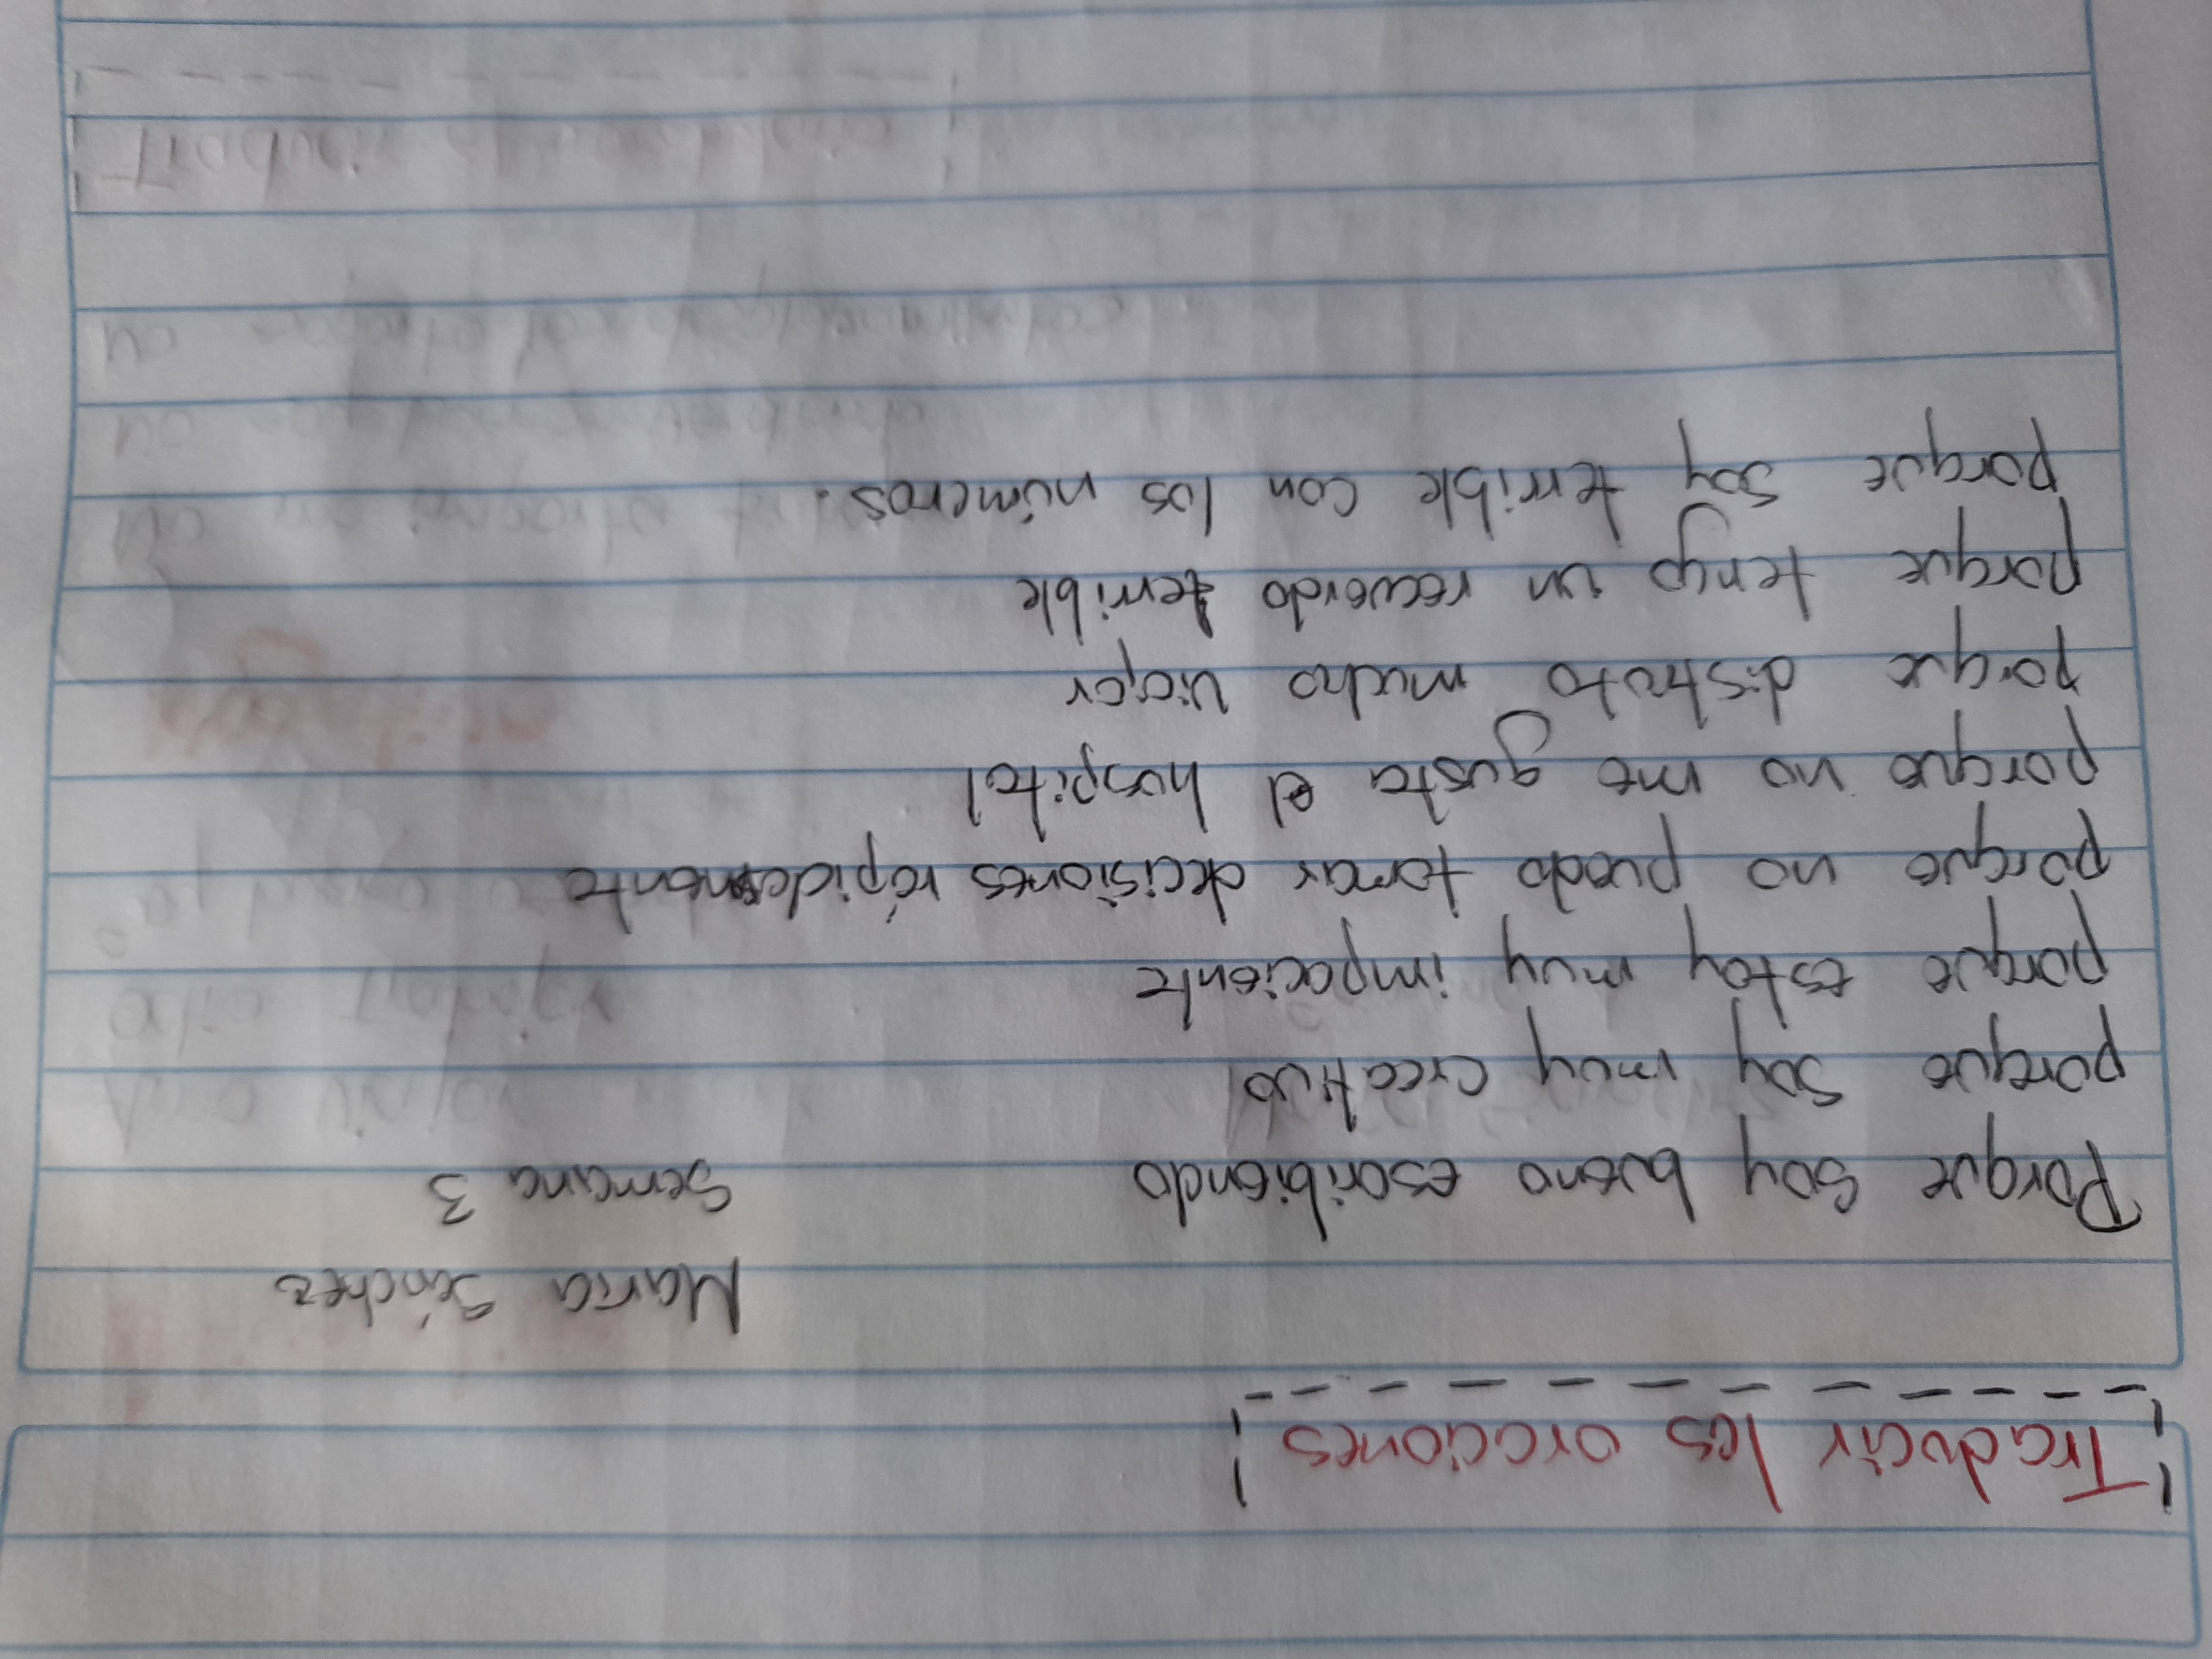 Traducir las oraciones
Maria Sánchez
Semana 3
Porque soy bueno escribiendo
porque soy muy creativo
porque estoy muy impaciente
porque no puedo tomar decisiones rápidamente
porque no me gusta el hospital
porque disfruto mucho viajar
porque tengo un recuerdo terrible
porque soy terrible con los números.